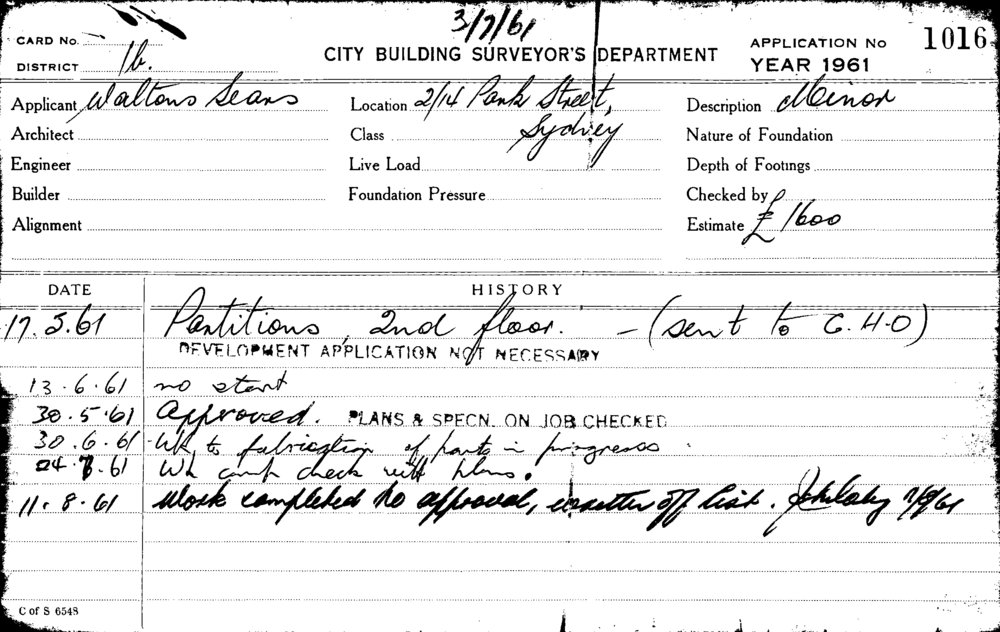 3/7/61
CARD No.
CITY BUILDING SURVEYOR'S DEPARTMENT
APPLICATION No 1016
DISTRICT 1b.
YEAR 1961
Applicant Waltons Sears Location 2/14 Park Street, Sydney Description Minor
Architect Class Nature of Foundation
Engineer Live Load Depth of Footings
Builder Foundation Pressure Checked by
Alignment Estimate £ 1600
DATE HISTORY
17.5.61 Partitions 2nd floor. - (sent to C.H.O)
DEVELOPMENT APPLICATION NOT NECESSARY
13.6.61 no start
30.5.61 Approved. PLANS & SPECN. ON JOB CHECKED
30.6.61 Wk to fabrication of parts in progress
61 Wk comp check with plans.
11.8.61 Work completed to approval, off list.
C of S 6548